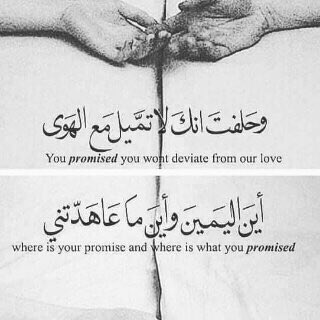 وحَلفتَ انكَ لا تمَّيل مَع الهَوى
You promised you wont deviate from our love
أينَ اليَمينَ وأينَ مَا عَاهَدّتني
where is your promise and where is what you promised